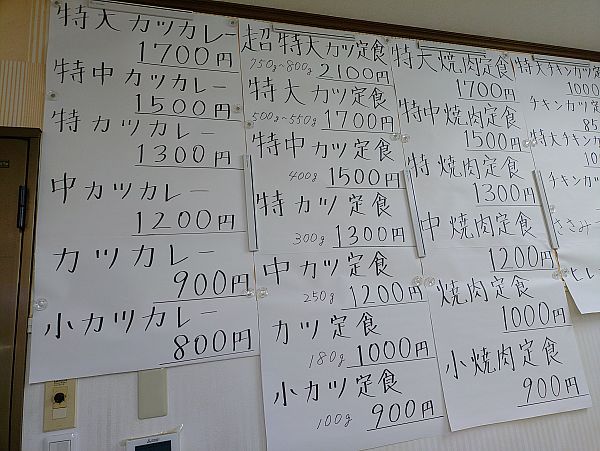 特大カツカレー
1700円
特中カツカレー
1500円
特カツカレー
1300円
中カツカレー
1200円
カツカレー
900円
小カツカレー
800円
超特大カツ定食
750g~800g 2100円
特大カツ定食
500g~550g 1700円
特中カツ定食
400g 1500円
特カツ定食
300g 1300円
中カツ定食
250g 1200円
カツ定食
180g 1000円
小カツ定食
100g 900円
特大焼肉定食
1700円
特中焼肉定食
1500円
特焼肉定食
1300円
中焼肉定食
1200円
焼肉定食
1000円
小焼肉定食
900円
特大チキンカツ定
1000
チキンカツ定
85
特大チキンカ
10
チキンカツ
ささみ
ヒレ